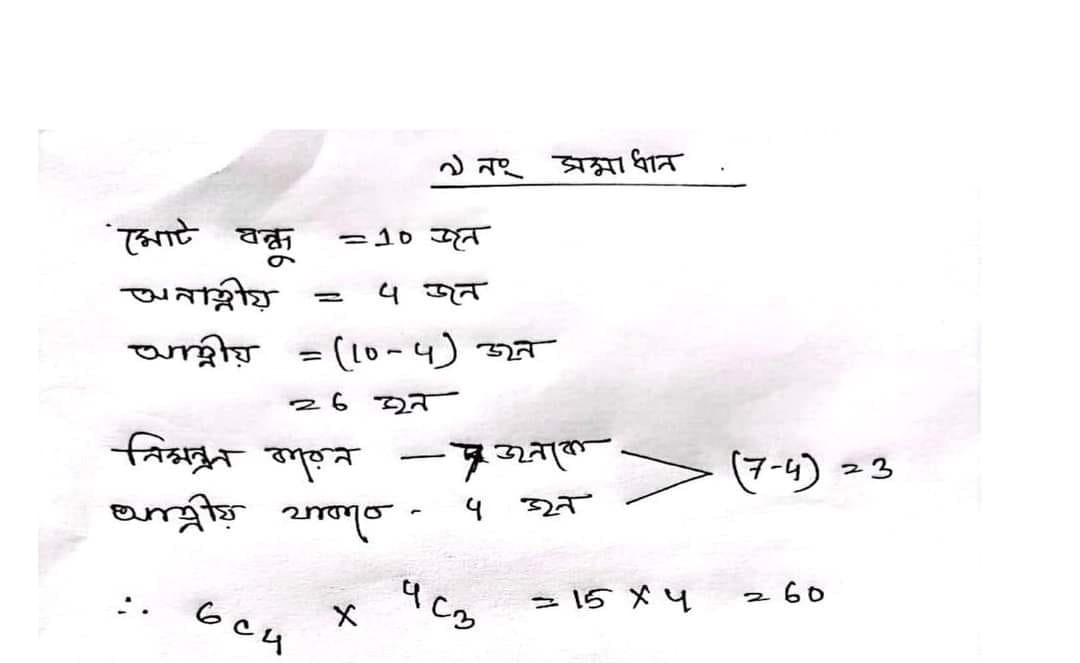 ৯ নং সমাধান .
মোট বন্ধু = 10 জন
অনাত্মীয় = 4 জন
আত্মীয় = (10 - 4) জন
= 6 জন
নিমন্ত্রন করেন — 7 জনকে
(7-4) = 3
আত্মীয় থাকবে - 4 জন
∴ 6C4 × 4C3 = 15 × 4 = 60